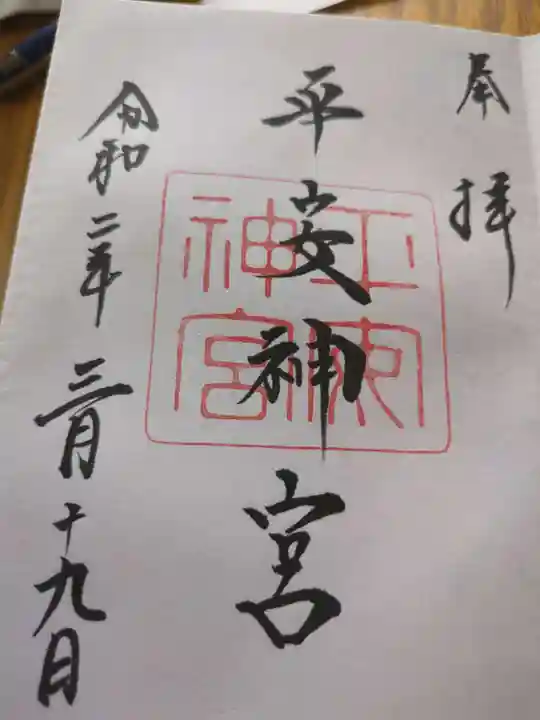 奉拝
平安神宮
令和二年三月十九日
平安神宮